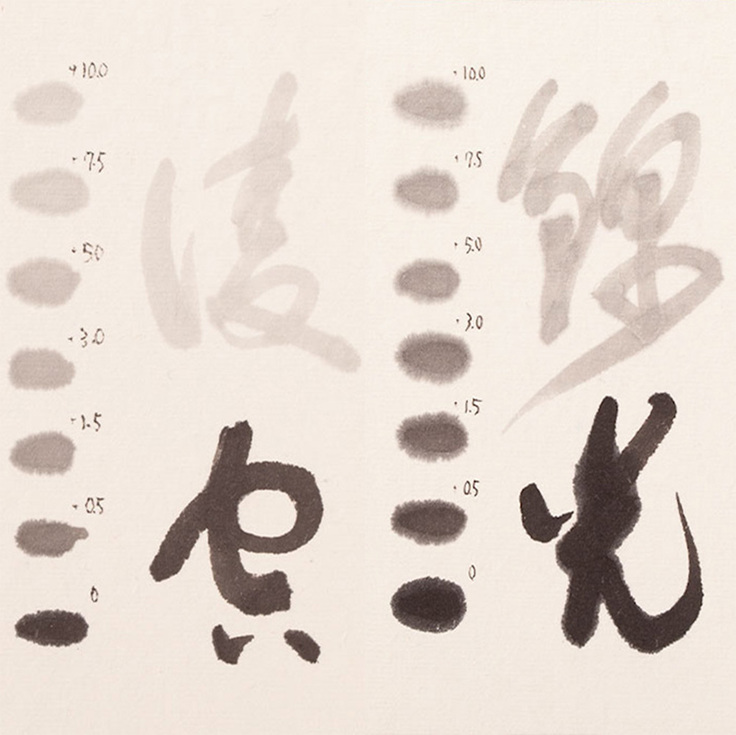 +10.0
+7.5
+5.0
+3.0
+1.5
+0.5
0
+10.0
+7.5
+5.0
+3.0
+1.5
+0.5
0
錦
光